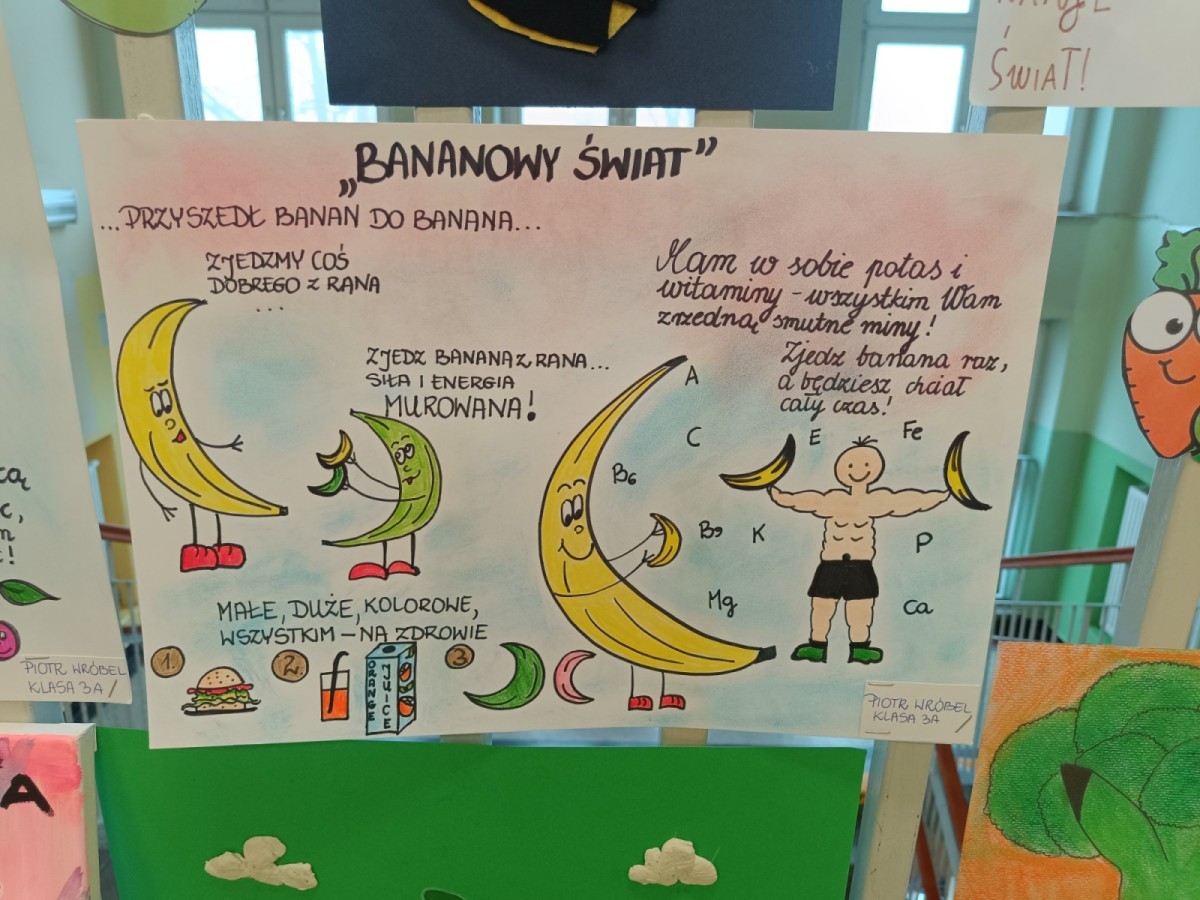 ŚWIAT!
„BANANOWY ŚWIAT”
...PRZYSZEDŁ BANAN DO BANANA...
ZJEDZMY COŚ
DOBREGO Z RANA
...
ZJEDZ BANANA Z RANA...
SIŁA I ENERGIA
MUROWANA!
Mam w sobie potas i
witaminy - wszystkim Wam
zrzedną smutne miny!
Zjedz banana raz,
a będziesz chciał
cały czas!
A
C
B6
B9
Mg
K
E
Fe
P
Ca
MAŁE, DUŻE, KOLOROWE,
WSZYSTKIM - NA ZDROWIE
1.
2.
ORANGE
JUICE
3
PIOTR WRÓBEL
KLASA 3A
PIOTR WRÓBEL
KLASA 3A
A